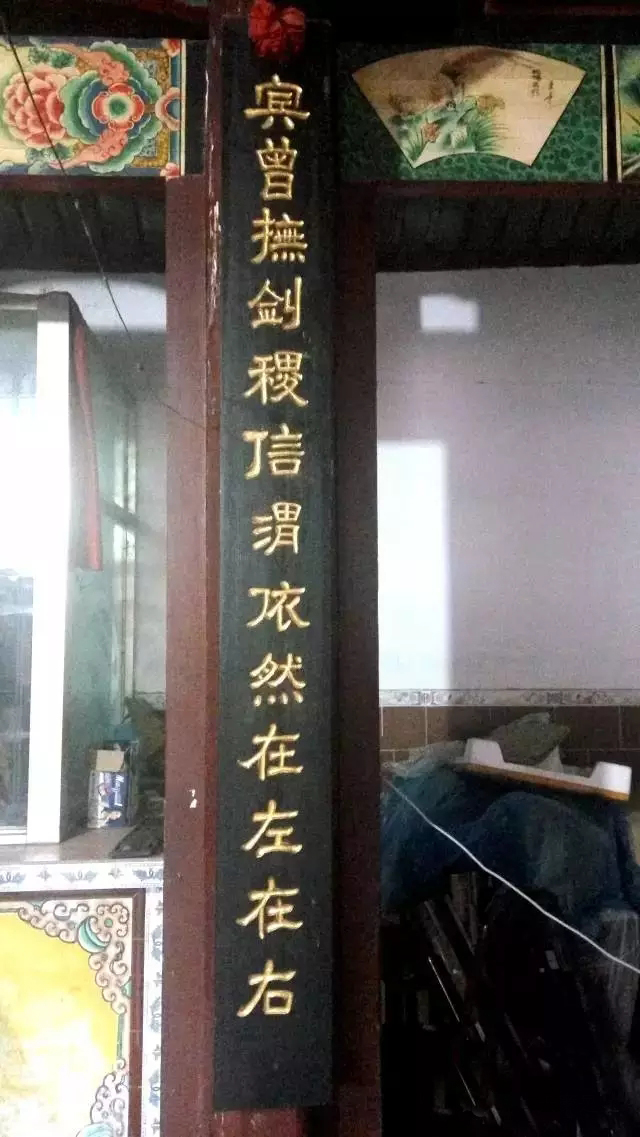 宾曾撫剑稷信渭依然在左在右